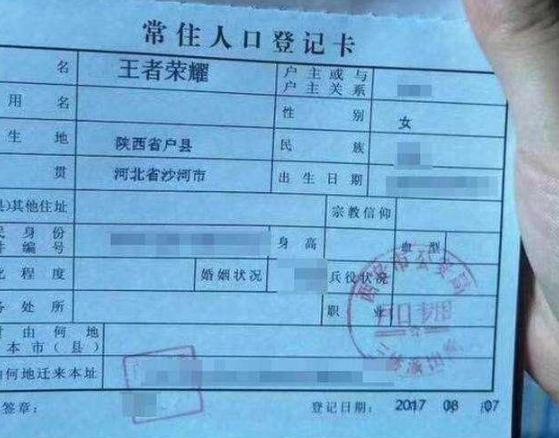 常住人口登记卡
名 王者荣耀 户主或与户主关系
用名 性别 女
生地 陕西省户县 民族
贯 河北省沙河市 出生日期
)其他住址 宗教信仰
身份
编号 身高 血型
程度 婚姻状况 兵役状况
务处所 职业
由何地
本市(县)
何地迁来本址
签章: 登记日期: 2017 08 07